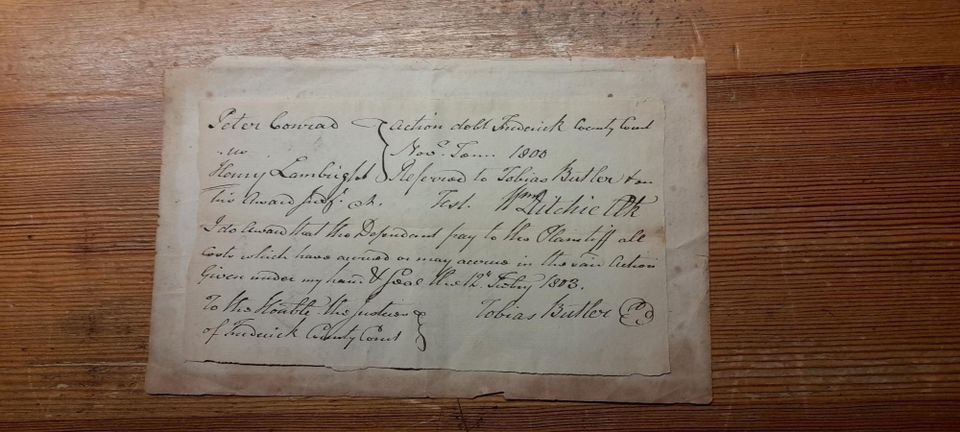 Peter Conrad } Action debt Frederick County Court
vs } Novr. Term 1800
Henry Lambright } Referred to Tobias Butler & on
his Award Judgt. &c. Test. Wm Ritchie Clk
I do award that the Defendant pay to the Plaintiff all
Costs which have accrued or may accrue in the said Action
Given under my hand & Seal this 12th Feby 1803.
To the Honble. the Justices } Tobias Butler
of Frederick County Court }